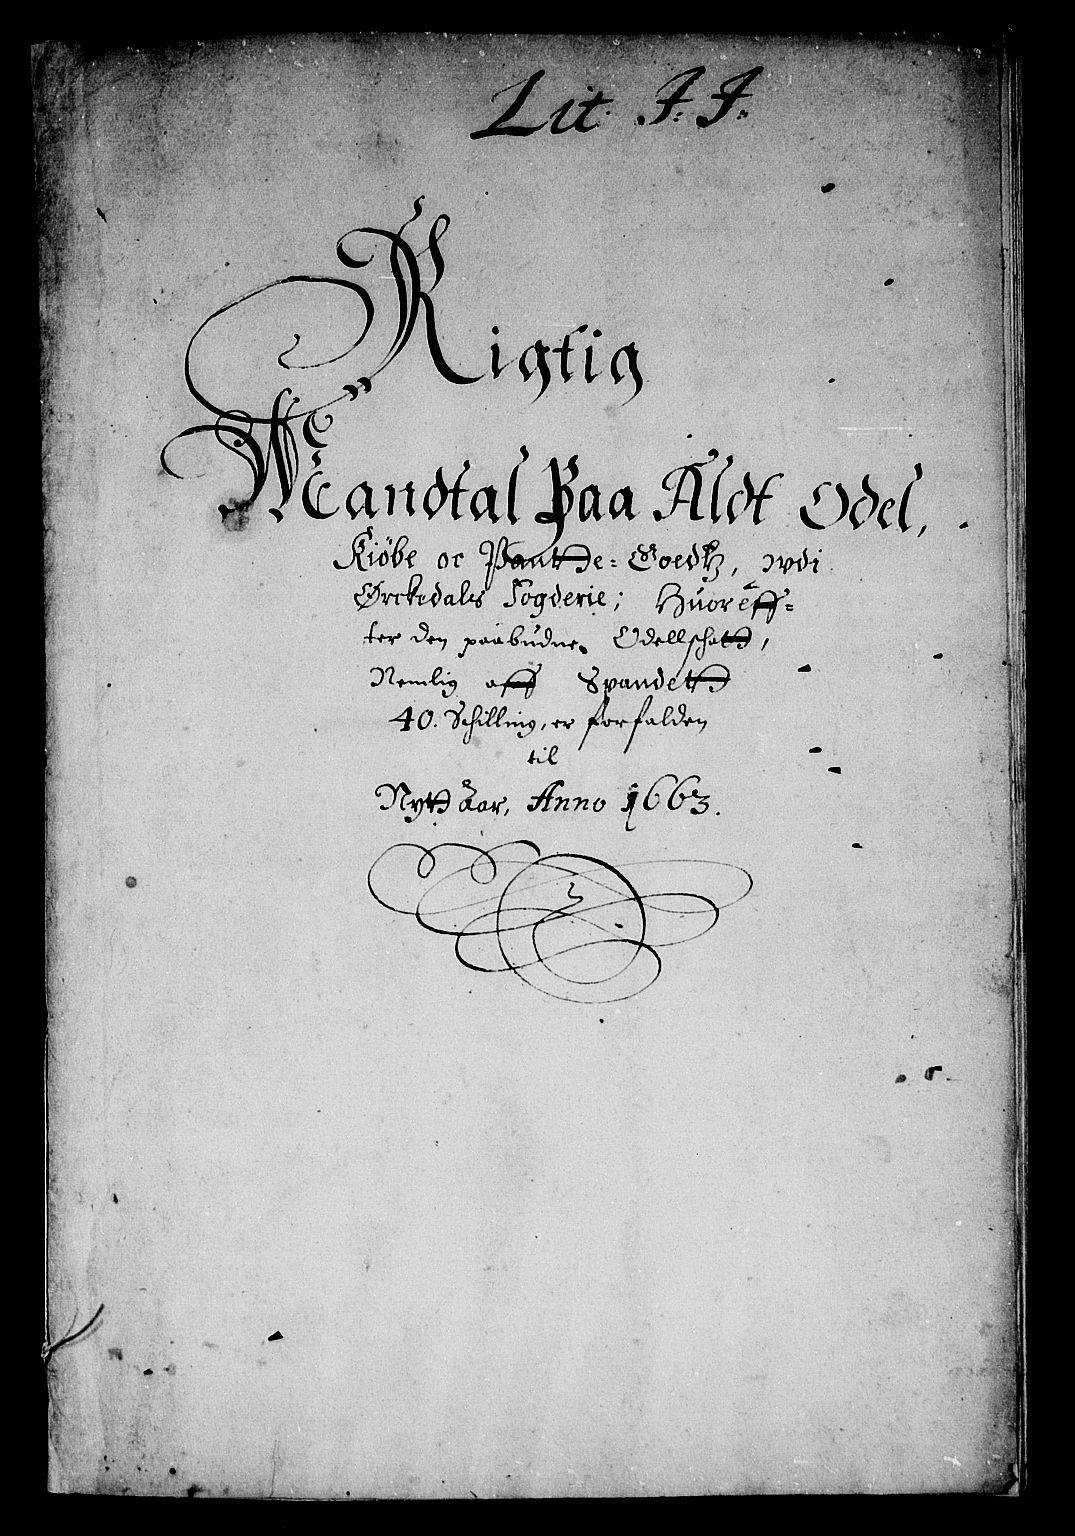 Lit. J: J:
Rigtig
Mandtal Paa Aldt Odel,
Kiøbe oc Pantte-Goedtz, udi
Ørckedals Fogderie; Huoreff=
ter den paabudne Odellschatt,
Nemlig aff Spandett
40. Schilling, er forfalden
til
Nytt Aar, Anno 1663.